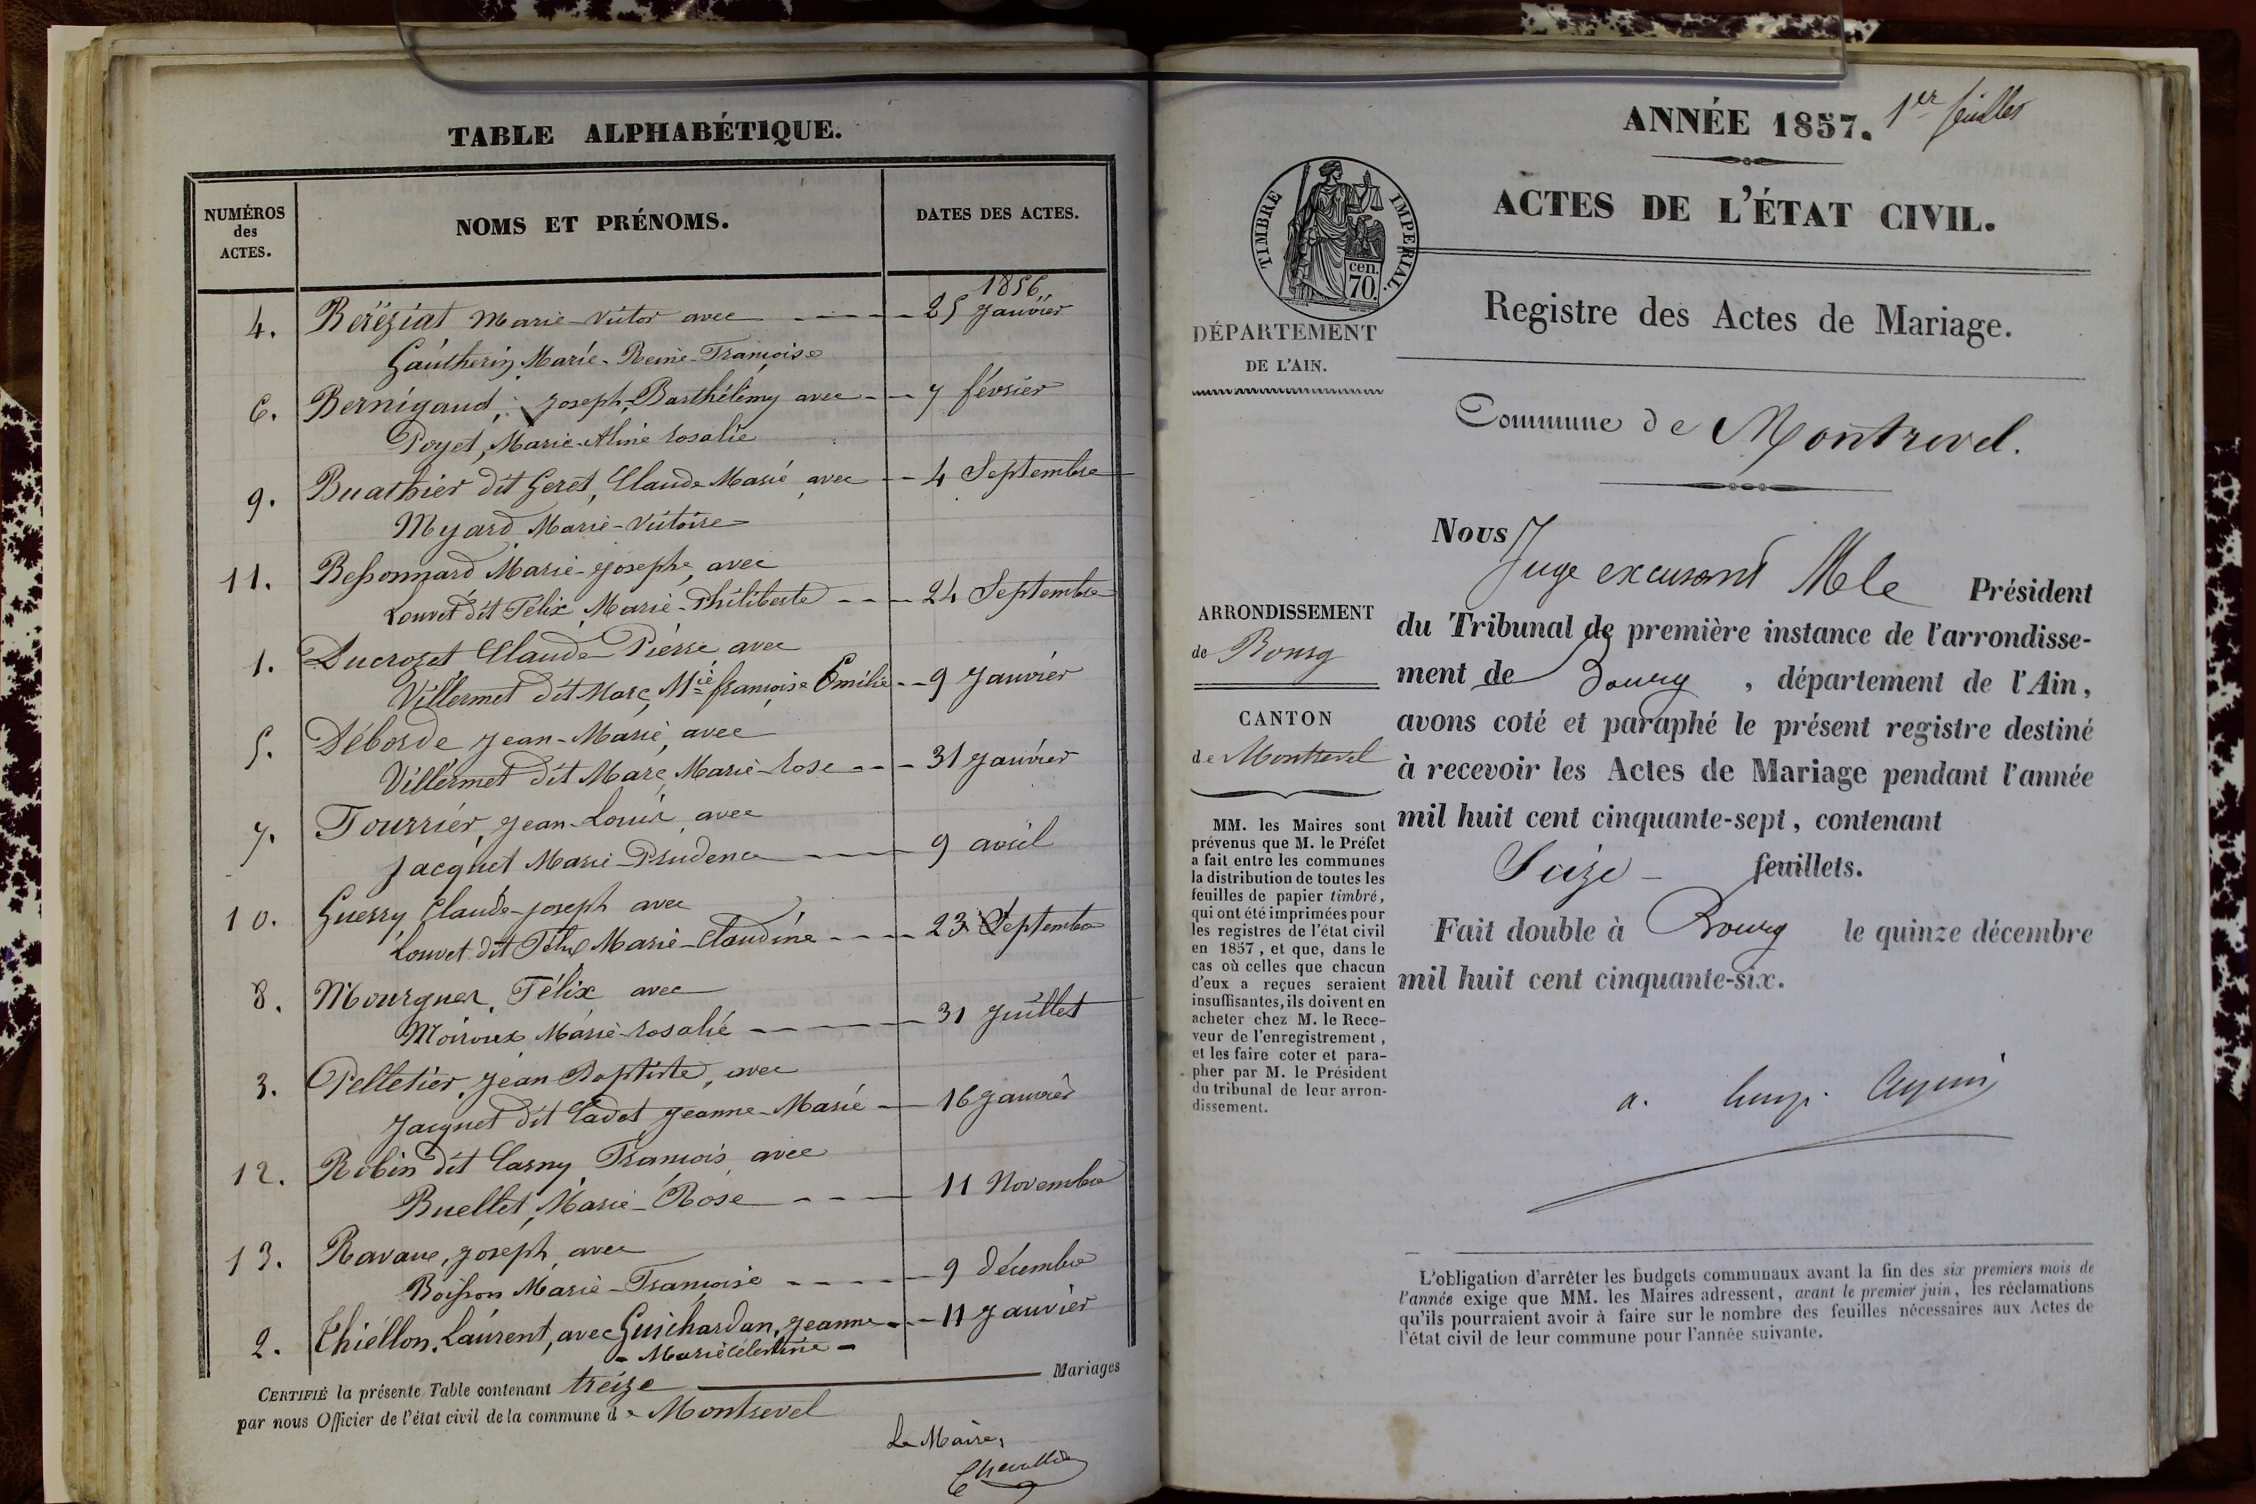 TABLE ALPHABÉTIQUE.
NUMÉROS
des
ACTES.
NOMS ET PRÉNOMS.
DATES DES ACTES.
1856
4. Béréziat Marie-Victor avec 25 Janvier
Gautherin Marie-Reine-Françoise
6. Bernigaud, Joseph, Barthélemy avec 7 février
Poyet, Marie-Aline rosalie
9. Buathier dit Geret, Claude Marie avec 4 Septembre
Myard Marie-Victoire
11. Bessonnard Marie-Josephe, avec
Louvet dit Félix, Marie-Philiberte 24 Septembre
1. Ducrozet Claude Pierre avec
Villermet dit Marc, Mie françoise Emélie 9 Janvier
5. Déborde Jean-Marie, avec
Villermet dit Marc, Marie-rose 31 Janvier
7. Fourrier, Jean-Louis, avec
Jacquet Marie-Prudence 9 avril
10. Guerry Claude-joseph avec
Louvet dit Félix Marie-Claudine 23 Septembre
8. Mourgues, Félix avec
Moiroux Marie-rosalie 31 Juillet
3. Pelletier, Jean Baptiste, avec
Jacquet dit Cadet, Jeanne-Marie 16 Janvier
12. Robin dit Carny François, avec
Buellet, Marie-Rose 11 Novembre
13. Ravaue, Joseph, avec
Boisson Marie-Françoise 9 décembre
2. Thiéllon, Laurent, avec Guichardan, Jeanne 11 Janvier
- Marie célestine -
CERTIFIÉ la présente Table contenant treize Mariages
par nous Officier de l'état civil de la commune de Montrevel
Le Maire,
ANNÉE 1857. 1er feuillet
ACTES DE L'ÉTAT CIVIL.
TIMBRE IMPÉRIAL.
cen.
70.
Registre des Actes de Mariage.
DÉPARTEMENT
DE L'AIN.
Commune de Montrevel.
ARRONDISSEMENT
de Bourg
CANTON
de Montrevel
MM. les Maires sont
prévenus que M. le Préfet
a fait entre les communes
la distribution de toutes les
feuilles de papier timbré,
qui ont été imprimées pour
les registres de l'état civil
en 1857, et que, dans le
cas où celles que chacun
d'eux a reçues seraient
insuffisantes, ils doivent en
acheter chez M. le Rece-
veur de l'enregistrement,
et les faire coter et para-
pher par M. le Président
du tribunal de leur arron-
dissement.
Nous
Juge excusant M le Président
du Tribunal de première instance de l'arrondisse-
ment de Bourg, département de l'Ain,
avons coté et paraphé le présent registre destiné
à recevoir les Actes de Mariage pendant l'année
mil huit cent cinquante-sept, contenant
Seize feuillets.
Fait double à Bourg le quinze décembre
mil huit cent cinquante-six.
L'obligation d'arrêter les budgets communaux avant la fin des six premiers mois de
l'année exige que MM. les Maires adressent, avant le premier juin, les réclamations
qu'ils pourraient avoir à faire sur le nombre des feuilles nécessaires aux Actes de
l'état civil de leur commune pour l'année suivante.